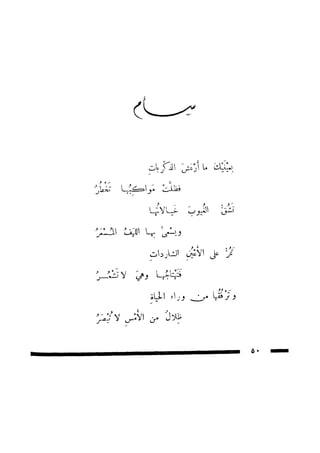 سأم
بعينيك ما أرعش الذكرياتِ
فظلّتْ مواكبُها تخطُرُ
تشقّ الغيوبَ خيالاتُها
ويسعى بها اللهفُ المُسْعَرُ
تمرّ على الأعينِ الشارداتِ
فتجتاحُها وهيَ لا تشعُرُ
وترقُبُها من وراء الحياةِ
ظلالٌ من الأمسِ لا تُبْصَرُ
٥٠